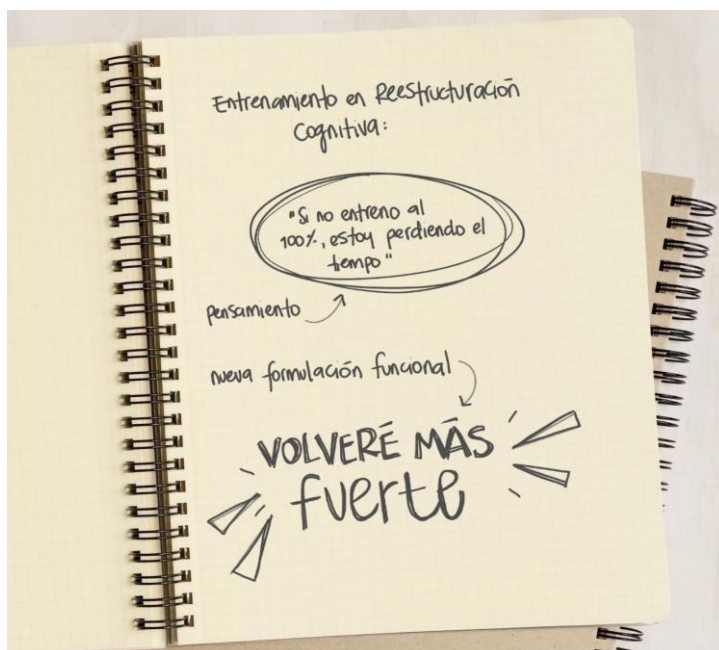 Entrenamiento en Reestructuración
Cognitiva:
"Si no entreno al
100%, estoy perdiendo el
tiempo"
pensamiento
nueva formulación funcional
VOLVERÉ MÁS
fuerte